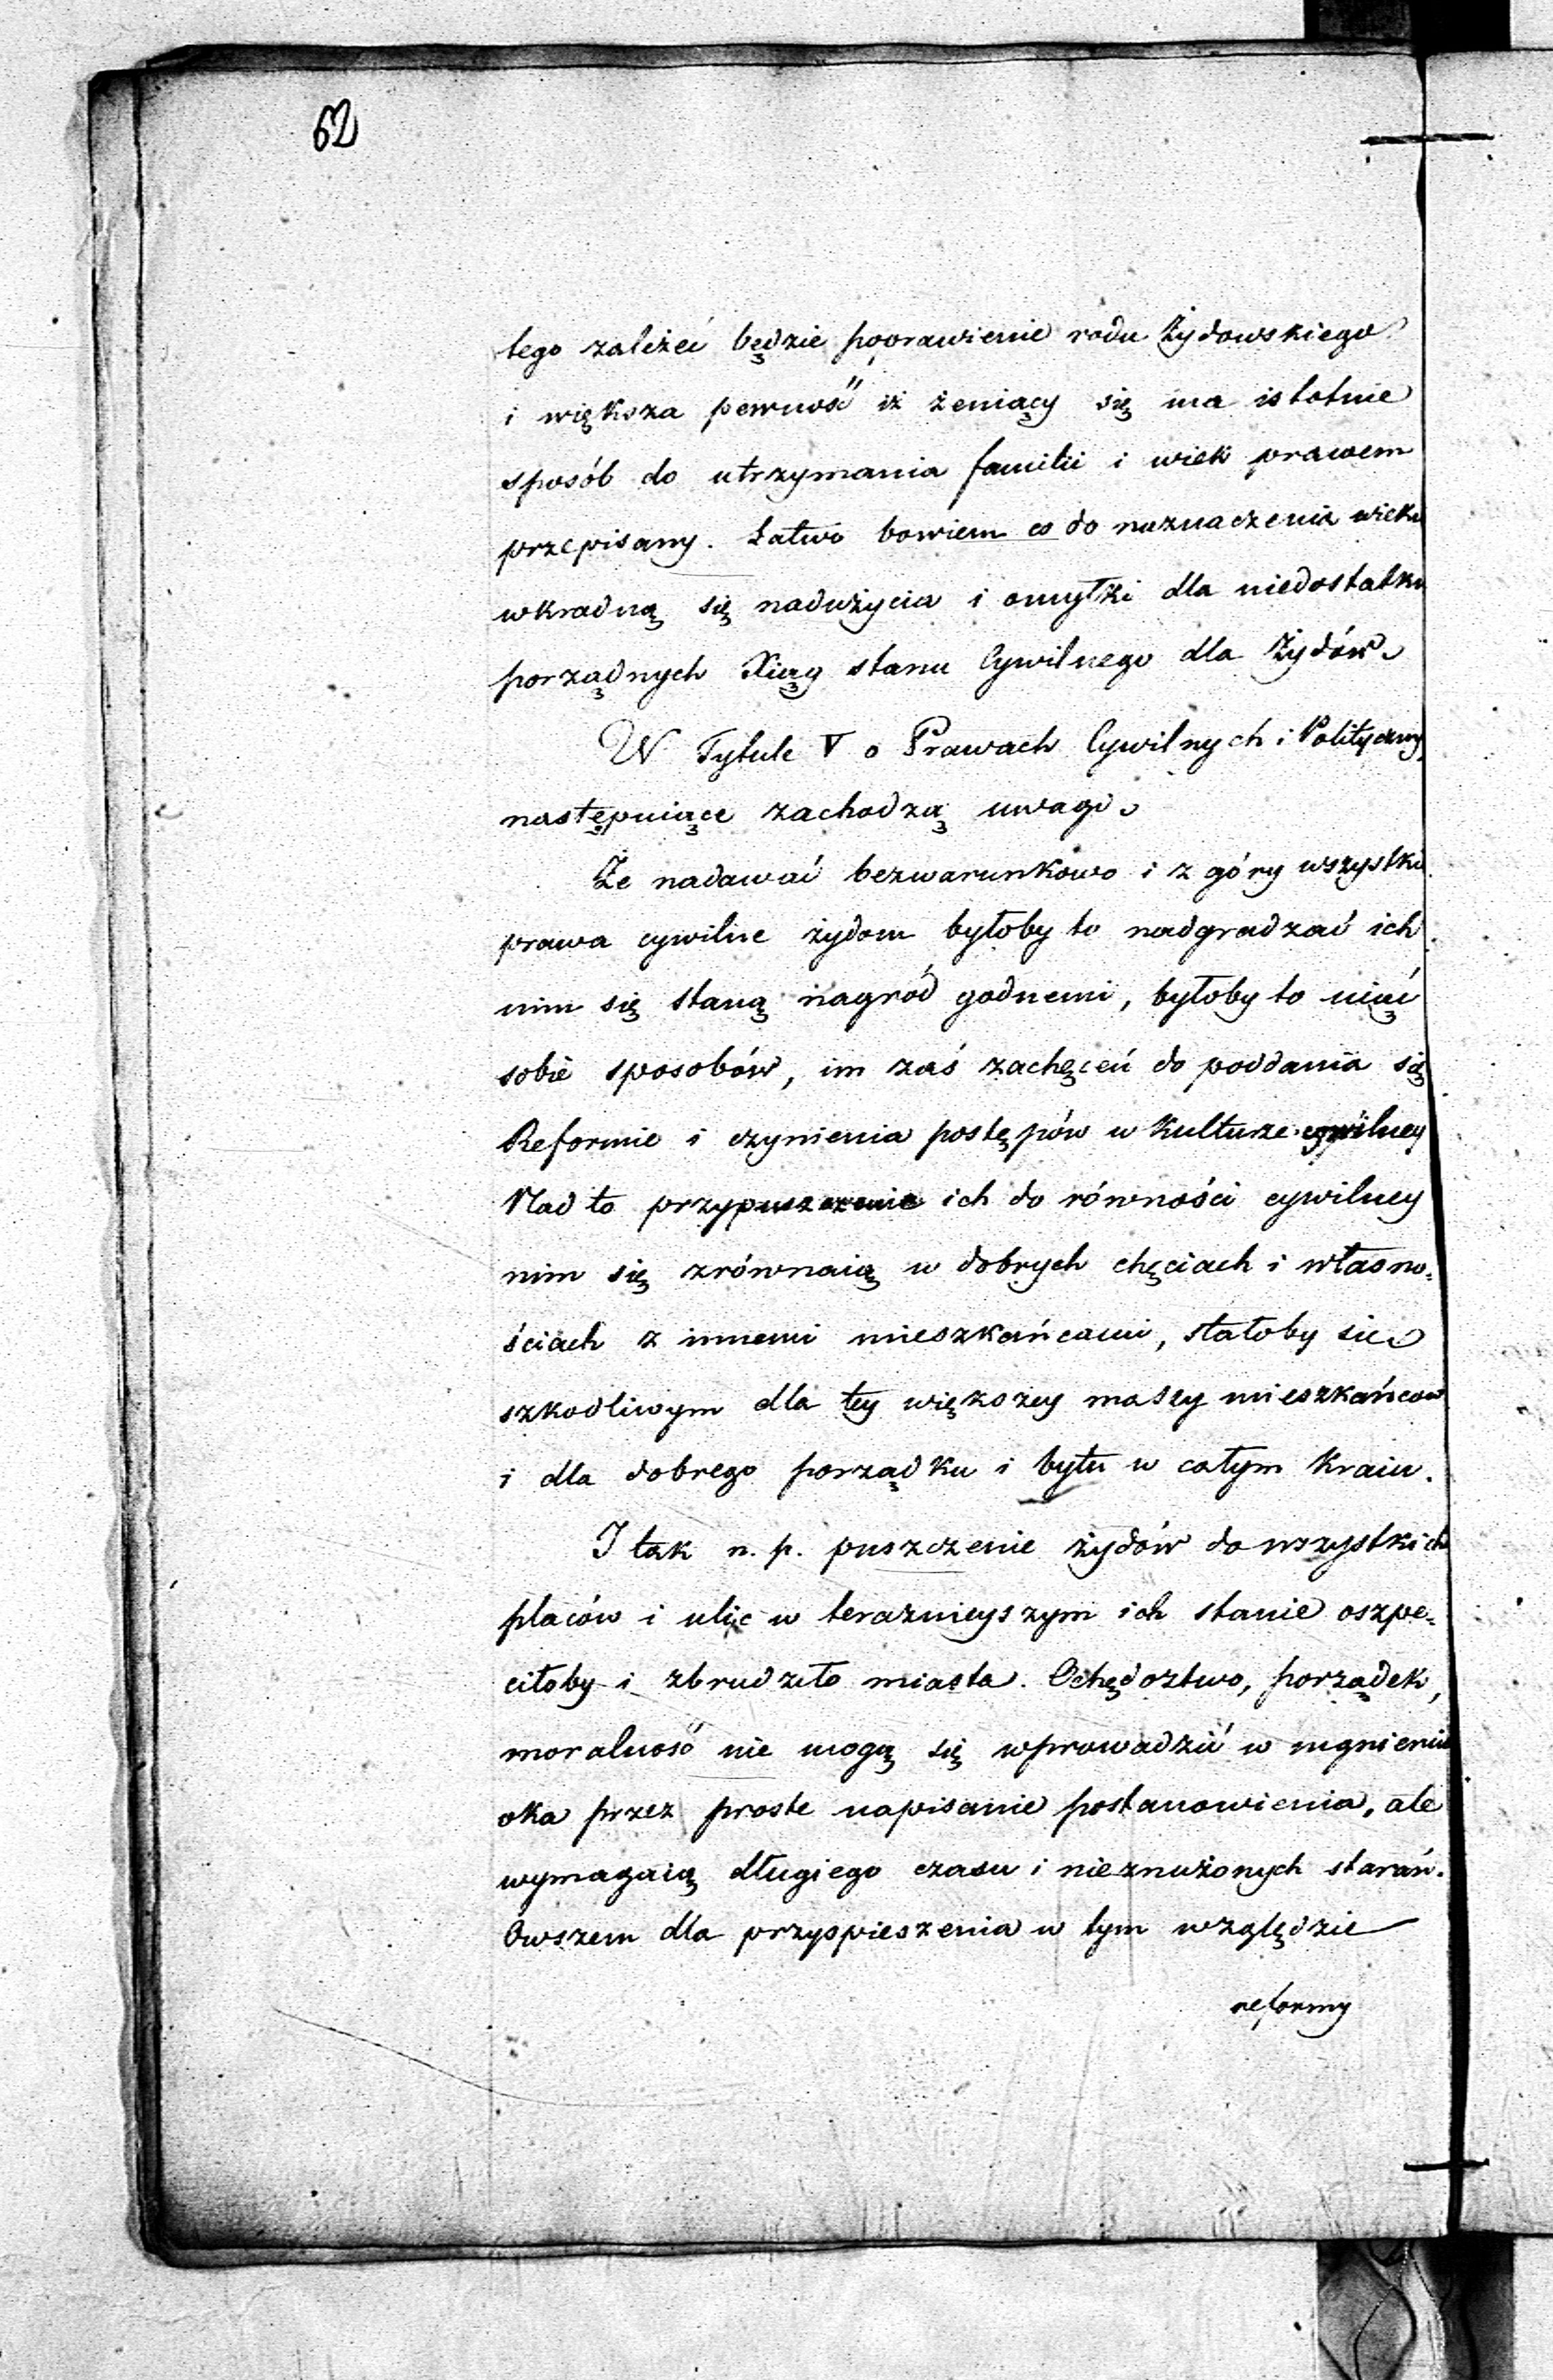 62
tego zależeć będzie poprawienie rodu Żydowskiego
i większa pewność iż żeniący się ma istotnie
sposób do utrzymania familii i wiek prawem
przepisany. Łatwo bowiem co do naznaczenia wieku
wkradną się nadużycia i omyłki dla niedostatku
porządnych Xiąg stanu Cywilnego dla Żydów.
W Tytule V o Prawach Cywilnych i Polityczny
następuiące zachodzą uwagi.
Że nadawać bezwarunkowo i z góry wszystkie
prawa cywilne żydom byłoby to nadgradzać ich
nim się staną nagród godnemi, byłoby to uiąć
sobie sposobów, im zaś zachęceń do poddania się
Reformie i czynienia postępów w kulturze cywilney
Nad to przypuszczenie ich do równości cywilney
nim się zrównaią w dobrych chęciach i własno-
ściach z innemi mieszkańcami, stałoby się
szkodliwym dla tey większey massy mieszkańcow
i dla dobrego porządku i bytu w całym Kraiu.
I tak n. p. puszczenie żydów do wszystkich
placów i ulic w teraznieyszym ich stanie oszpe-
ciłoby i zbrudziło miasta. Ochędoztwo, porządek,
moralność nie mogą się wprowadzić w mgnieniu
oka przez proste napisanie postanowienia, ale
wymagaią długiego czasu i nieznużonych starań.
Owszem dla przyspieszenia w tym względzie
reformy